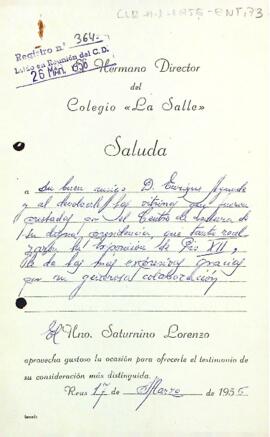 CLR.A.2.1955-ENT,73
Registro n.º 364
Leído en Reunión del C.D.
26 MAR. 1955
El Hermano Director
del
Colegio «La Salle»
Saluda
a su buen amigo D. Enrique Aguadé
y al devolverle las vitrinas que fueron
prestadas por el Centro de Lectura de
su digna presidencia, que tanto real
zaron la exposición de Pío XII,
le da las más expresivas gracias
por su generosa colaboración
Hno. Saturnino Lorenzo
aprovecha gustoso la ocasión para ofrecerle el testimonio de
su consideración más distinguida.
Reus 17 de Marzo de 1955